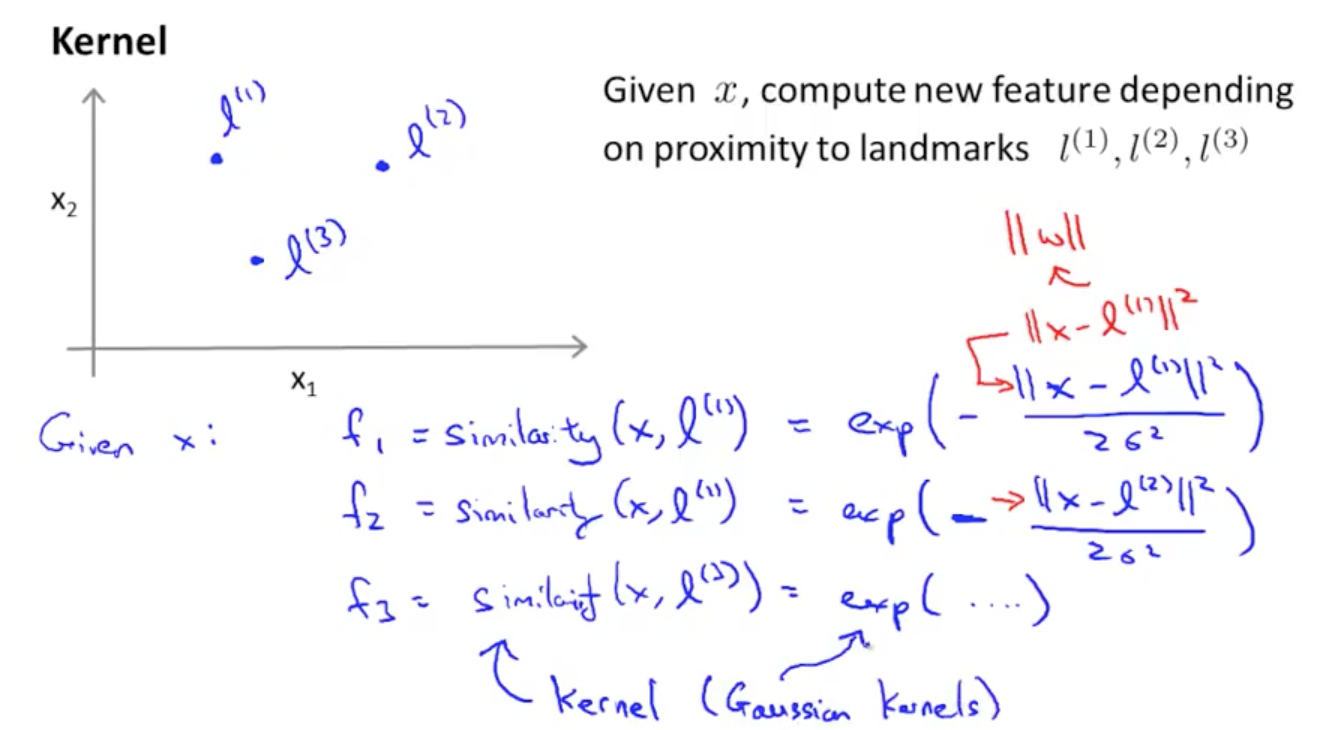 Kernel
l⁽¹⁾
l⁽²⁾
l⁽³⁾
x₂
x₁
Given x, compute new feature depending
on proximity to landmarks l⁽¹⁾, l⁽²⁾, l⁽³⁾
||w||
||x - l⁽¹⁾||²
Given x: f₁ = similarity (x, l⁽¹⁾) = exp( - ||x - l⁽¹⁾||² / 2σ² )
f₂ = similarity (x, l⁽¹⁾) = exp( - ||x - l⁽²⁾||² / 2σ² )
f₃ = similarity (x, l⁽³⁾) = exp( .... )
Kernel (Gaussian Kernels)